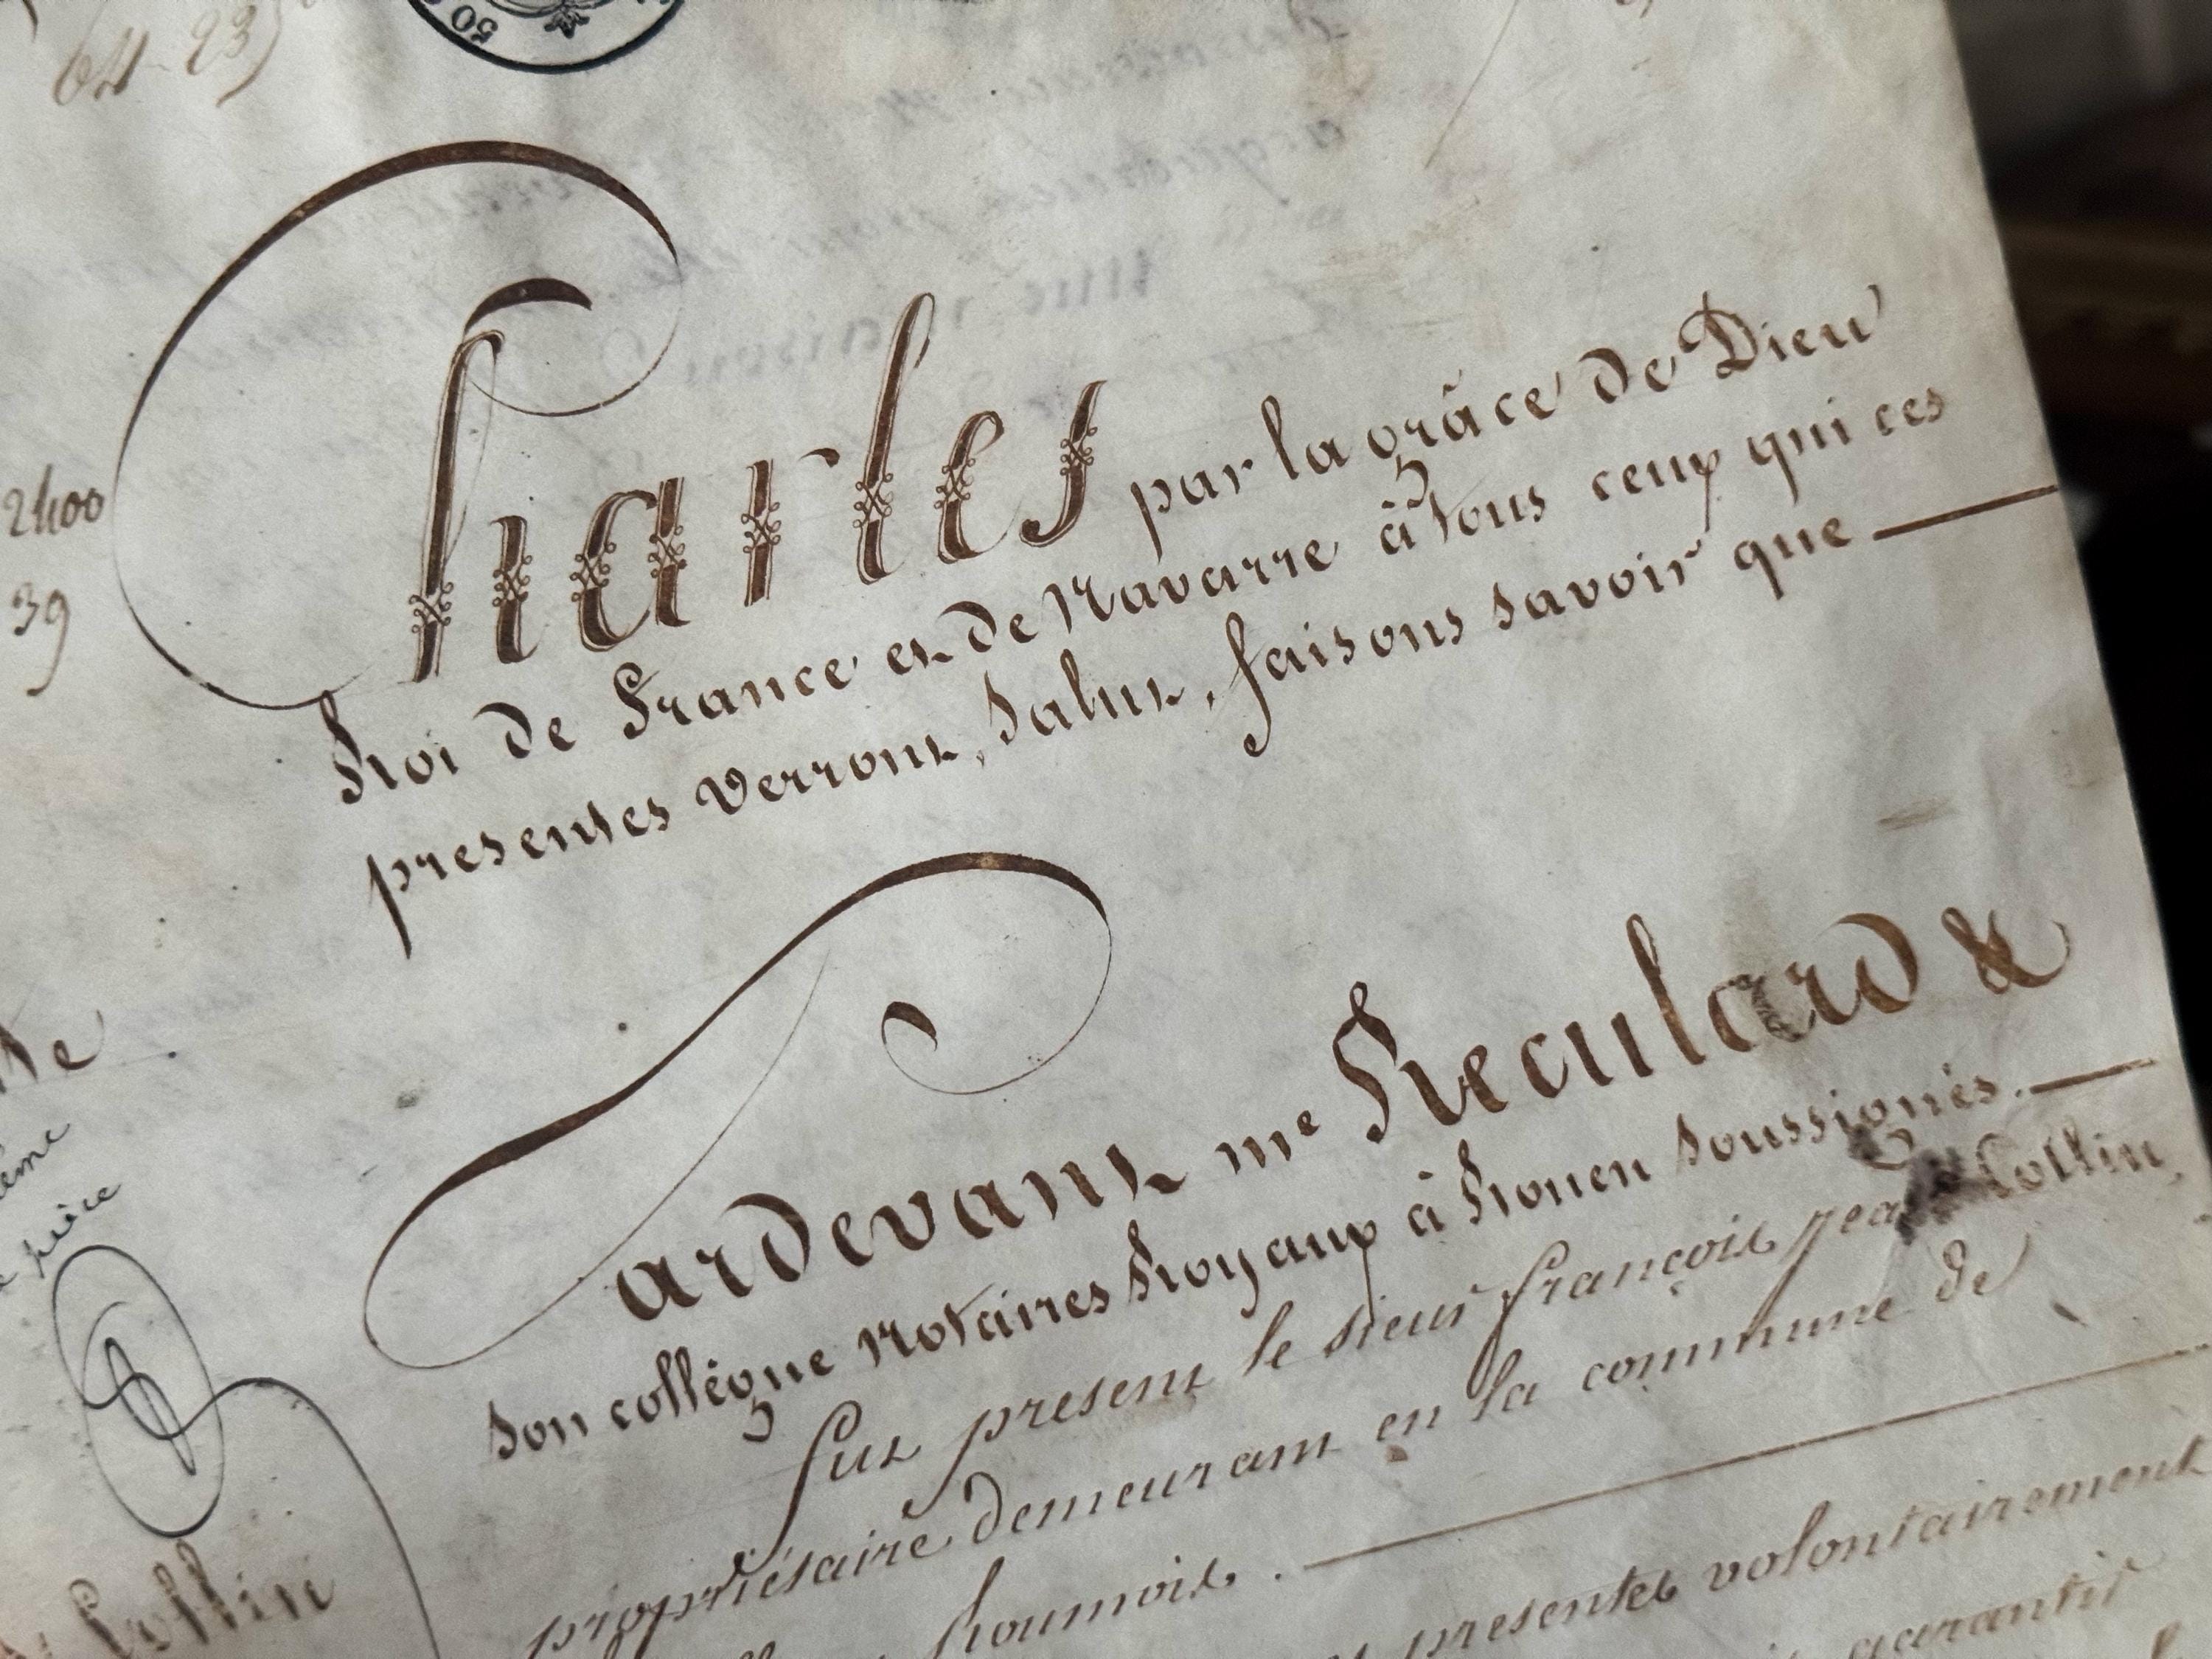 64-23
50
Charles par la grâce de Dieu
2400
Roi de France et de Navarre à tous ceux qui ces
39
presentes verront, Salut, faisons savoir que
Pardevant me Reculard &
son collègue Notaires Royaux à Rouen soussignés.
fut present le sieur françois jean Collin,
propriétaire demeurant en la commune de
Roumois.
presentes volontairement
garantir
pière
Collin